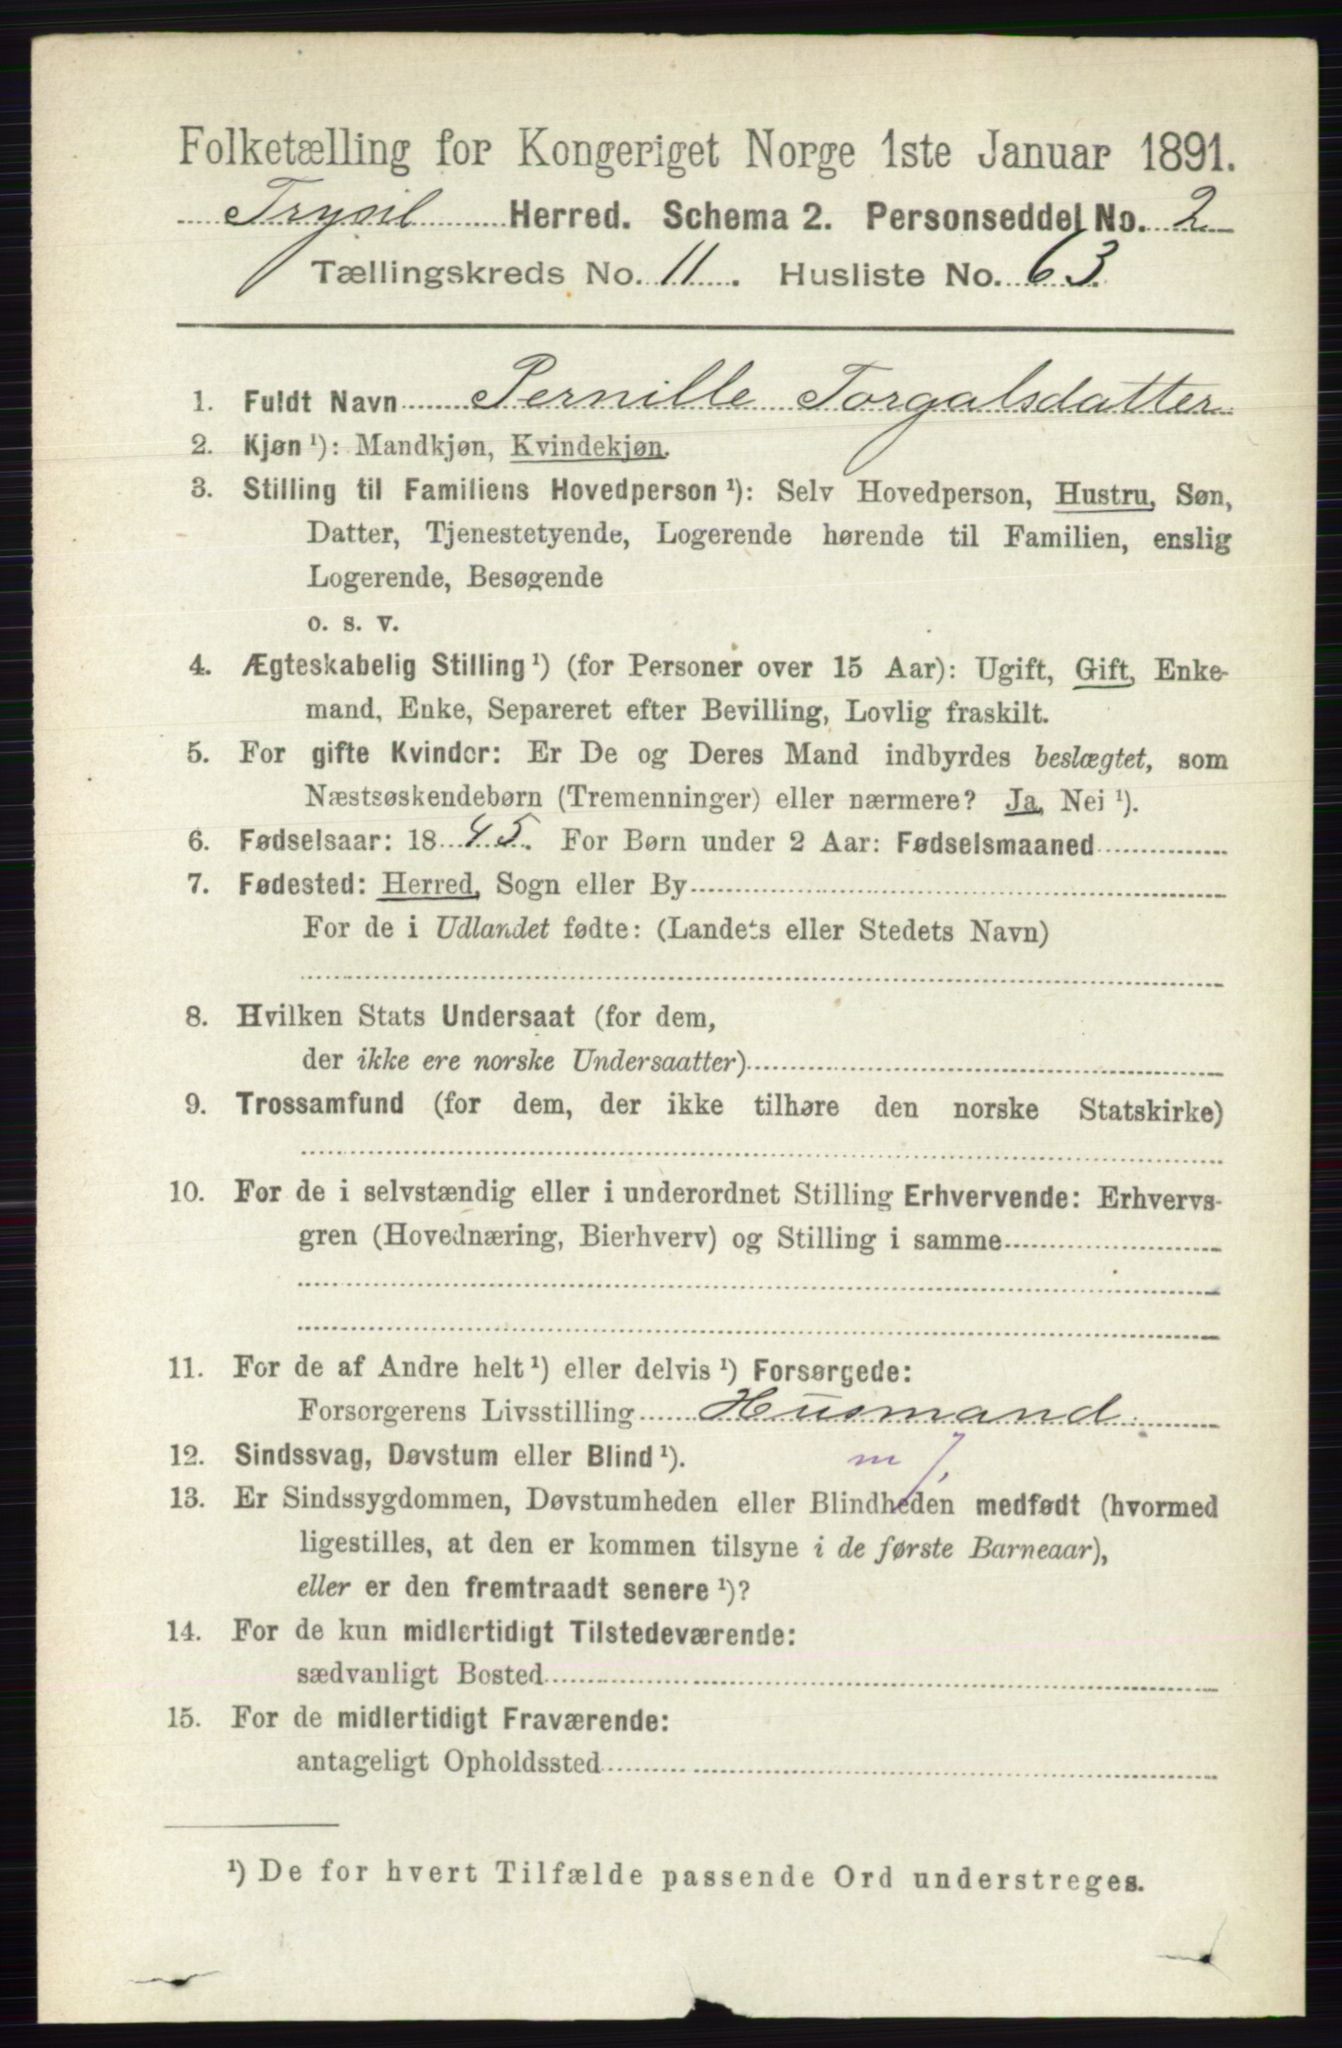 Folketælling for Kongeriget Norge 1ste Januar 1891.
Trysil Herred. Schema 2. Personseddel No. 2
Tællingskreds No. 11. Husliste No. 63.
1. Fuldt Navn Pernille Torgalsdatter
2. Kjøn ¹): Mandkjøn, Kvindekjøn.
3. Stilling til Familiens Hovedperson ¹): Selv Hovedperson, Hustru, Søn,
Datter, Tjenestetyende, Logerende hørende til Familien, enslig
Logerende, Besøgende
o. s. v.
4. Ægteskabelig Stilling ¹) (for Personer over 15 Aar): Ugift, Gift, Enke-
mand, Enke, Separeret efter Bevilling, Lovlig fraskilt.
5. For gifte Kvinder: Er De og Deres Mand indbyrdes beslægtet, som
Næstsøskendebørn (Tremenninger) eller nærmere? Ja, Nei ¹).
6. Fødselsaar: 1845. For Børn under 2 Aar: Fødselsmaaned
7. Fødested: Herred, Sogn eller By
For de i Udlandet fødte: (Landets eller Stedets Navn)
8. Hvilken Stats Undersaat (for dem,
der ikke ere norske Undersaatter)
9. Trossamfund (for dem, der ikke tilhøre den norske Statskirke)
10. For de i selvstændig eller i underordnet Stilling Erhvervende: Erhvervs-
gren (Hovednæring, Bierhverv) og Stilling i samme
11. For de af Andre helt ¹) eller delvis ¹) Forsørgede:
Forsørgerens Livsstilling Husmand
12. Sindssvag, Døvstum eller Blind ¹).
13. Er Sindssygdommen, Døvstumheden eller Blindheden medfødt (hvormed
ligestilles, at den er kommen tilsyne i de første Barneaar),
eller er den fremtraadt senere ¹)?
14. For de kun midlertidigt Tilstedeværende:
sædvanligt Bosted
15. For de midlertidigt Fraværende:
antageligt Opholdssted
¹) De for hvert Tilfælde passende Ord understreges.